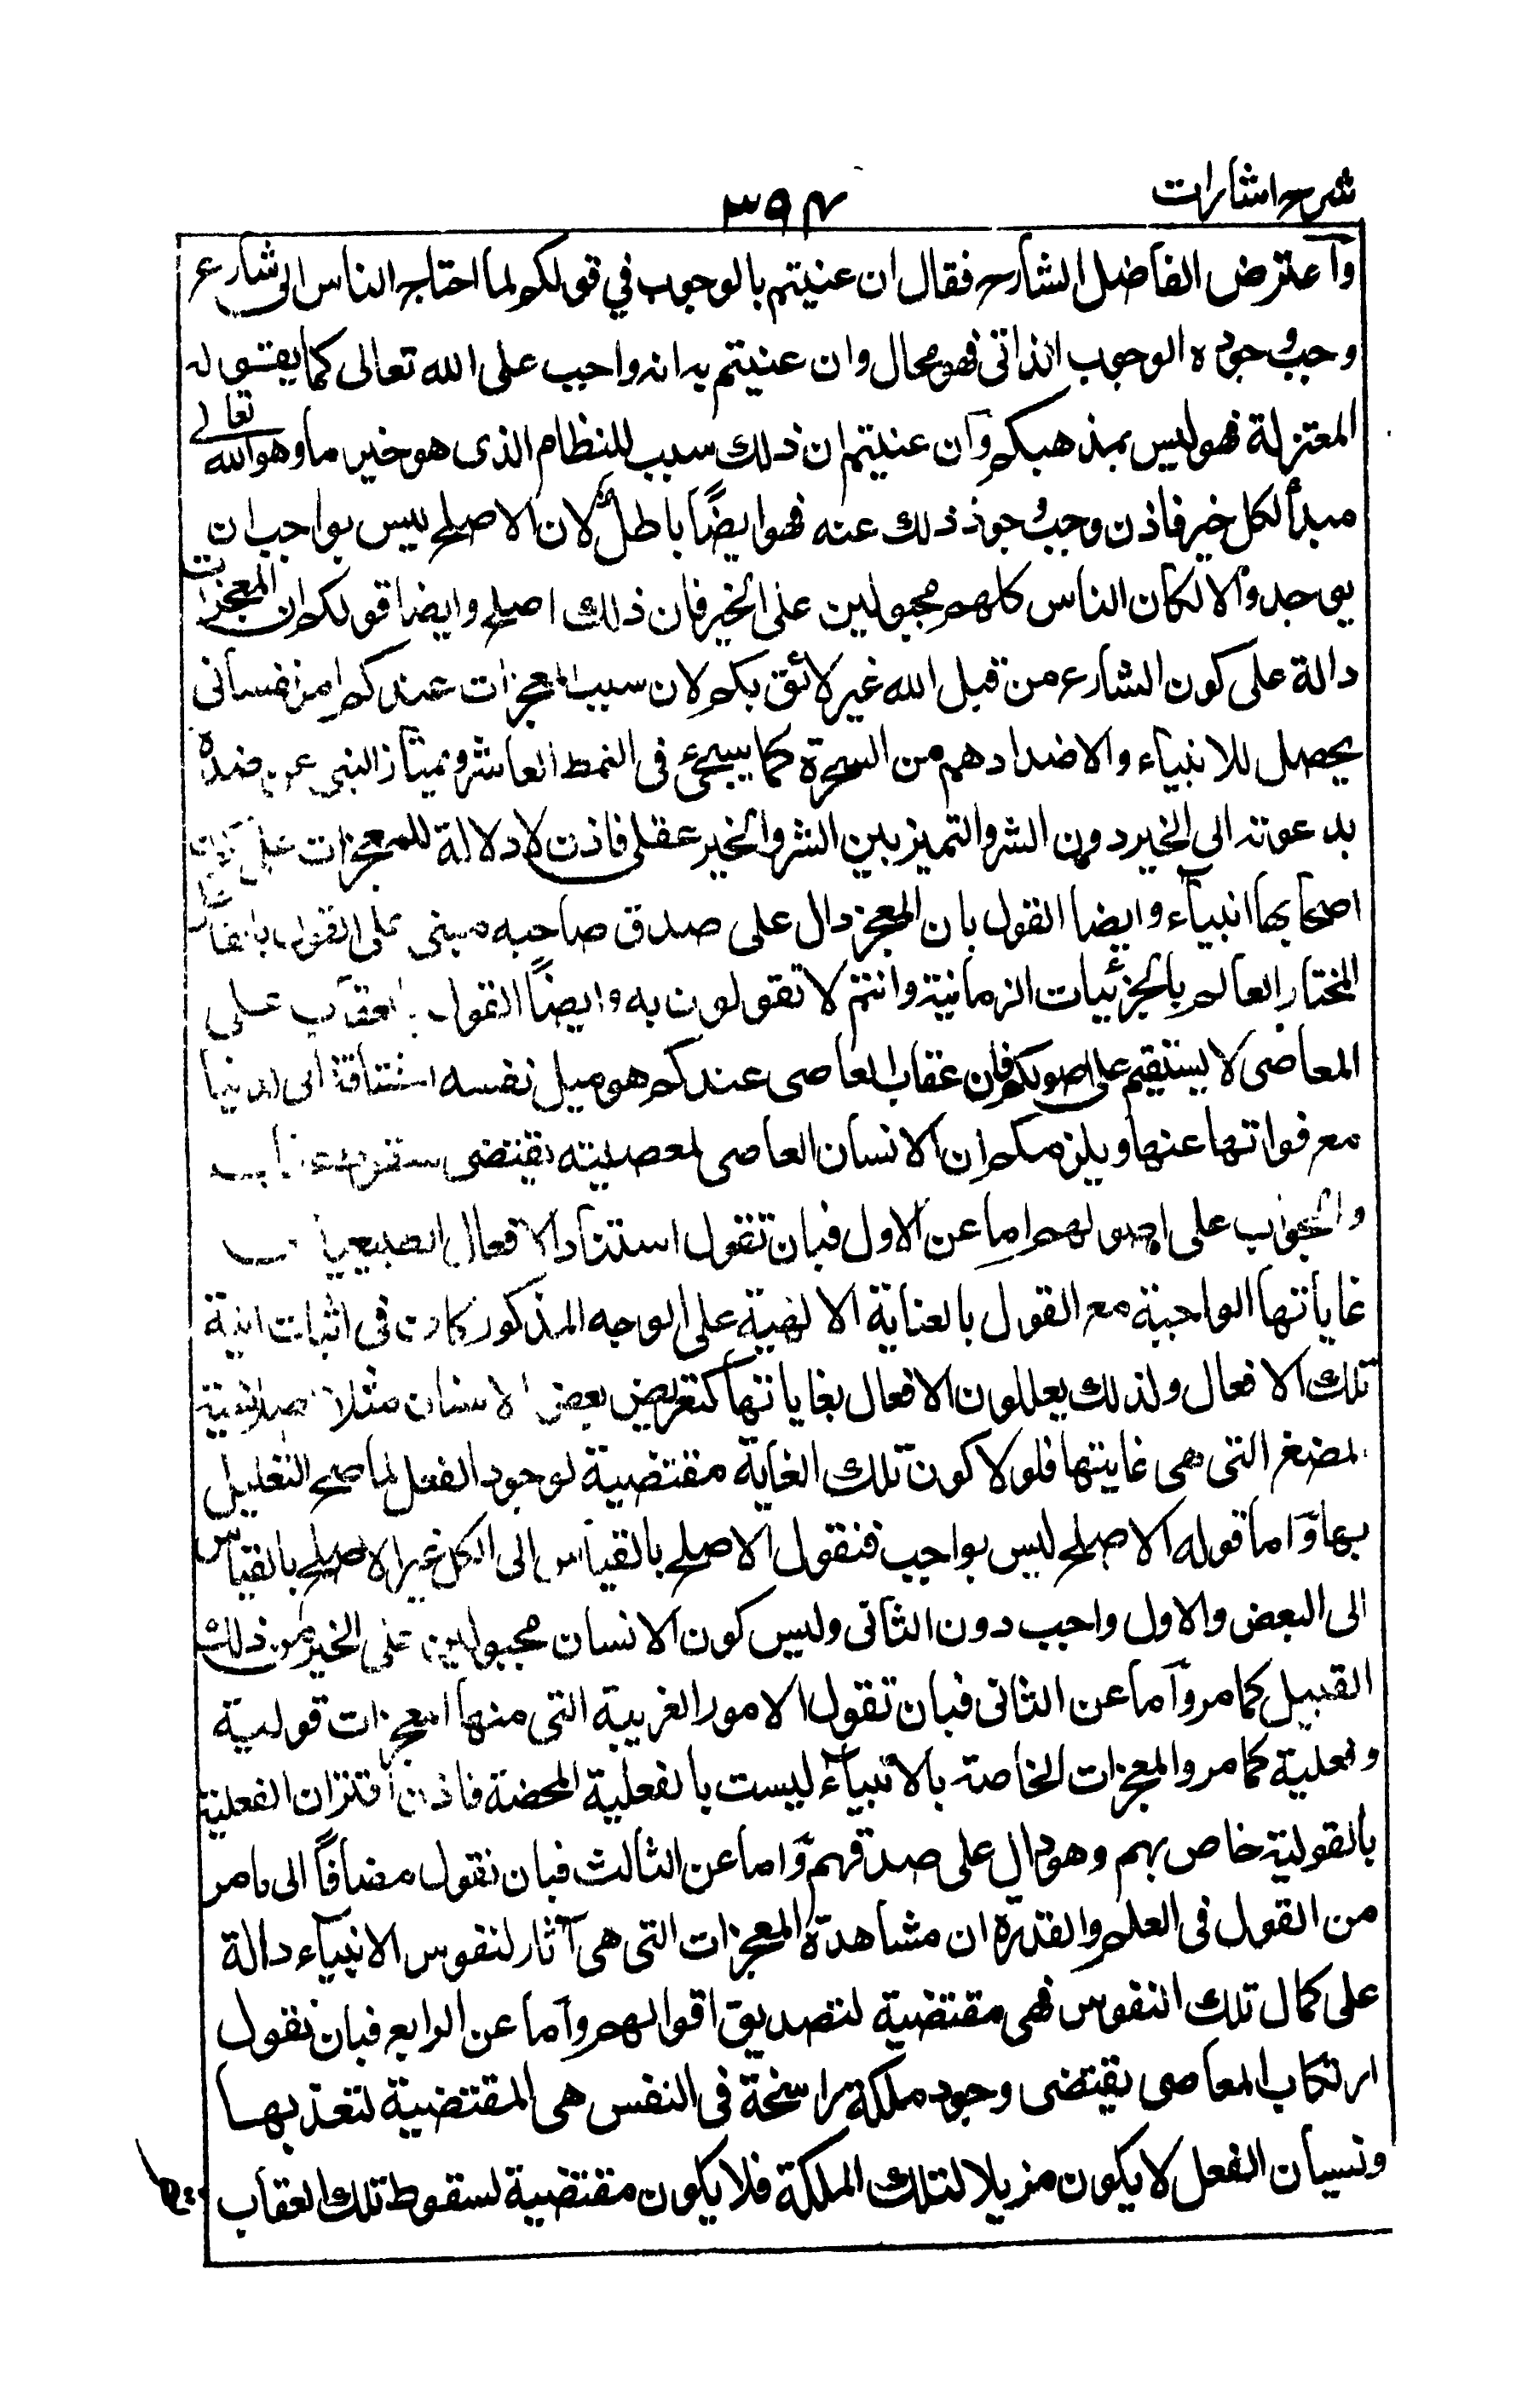 شرح اشارات
٣٩٤
وآعترض الفاضل الشارح فقال ان عنيتم بالوجوب في قولكم لما احتاج الناس الى شارع
وجب وجوده الوجوب الذاتى فهو محال وان عنيتم به انه واجب على الله تعالى كما يقوله
المعتزلة فهو ليس بمذهبكم وآن عنيتم ان ذلك سبب للنظام الذى هو خير ما وهو الله تعالى
مبدأ لكل خير فاذن وجب وجود ذلك عنه فهو ايضًا باطل لان الاصلح ليس بواجب ان
يوجد والا لكان الناس كلهم مجبولين على الخير فان ذلك اصلح وايضا قولكم ان المعجزات
دالة على كون الشارع من قبل الله غير لائق بكم لان سبب المعجزات عندكم امر نفسانى
يحصل للانبياء والاضدادهم من السحرة كما يجئ فى النمط العاشر ويمتاز النبى عن ضده
بدعوته الى الخير دون الشر والتميز بين الشر والخير عقلى فاذن لا دلالة للمعجزات على
اصحابها انبياء وايضا القول بان المعجز دال على صدق صاحبه مبنى على القول
المختار العالم بالجزئيات الزمانية وانتم لا تقولون به وايضًا القول بالعقاب على
المعاصى لا يستقيم على اصولكم فان عقاب العاصى عندكم هو ميل نفسه المشتاقة الى الدنيا
مع فواتها عنها ويلزمكم ان الانسان العاصى لمعصيته يقتضى
والجواب على اصولهم اما عن الاول فبان تقول استناد الافعال الطبيعية
غاياتها الواجبة مع القول بالعناية الالهية على الوجه المذكور كاف فى اثبات انية
تلك الافعال ولذلك يعللون الافعال بغاياتها كتعريض بعض الاسنان مثلا لصلاحية
لمضغ التى هى غايتها فلولا كون تلك الغاية مقتضية لوجود الفعل لما صح التعليل
بها وآما قوله الاصلح ليس بواجب فنقول الاصلح بالقياس الى الكل غير الاصلح بالقياس
الى البعض والاول واجب دون الثانى وليس كون الانسان مجبولين على الخير من ذلك
القبيل كما مر وآما عن الثانى فبان تقول الامور الغريبة التى منها المعجزات قولية
وفعلية كما مر والمعجزات الخاصة بالانبياء ليست بالفعلية المحضة فاذن اقتران الفعلية
بالقولية خاص بهم وهو دال على صدقهم وآما عن الثالث فبان نقول مضافًا الى مامر
من القول فى العلم والقدرة ان مشاهدة المعجزات التى هى آثار لنفوس الانبياء دالة
على كمال تلك النفوس فهى مقتضية لتصديق اقوالهم وآما عن الرابع فبان نقول
ارتكاب المعاصى يقتضى وجود ملكة راسخة فى النفس هى المقتضية لتعذبها
ونسيان الفعل لا يكون مزيلا لتلك الملكة فلا يكون مقتضية لسقوط تلك العقاب